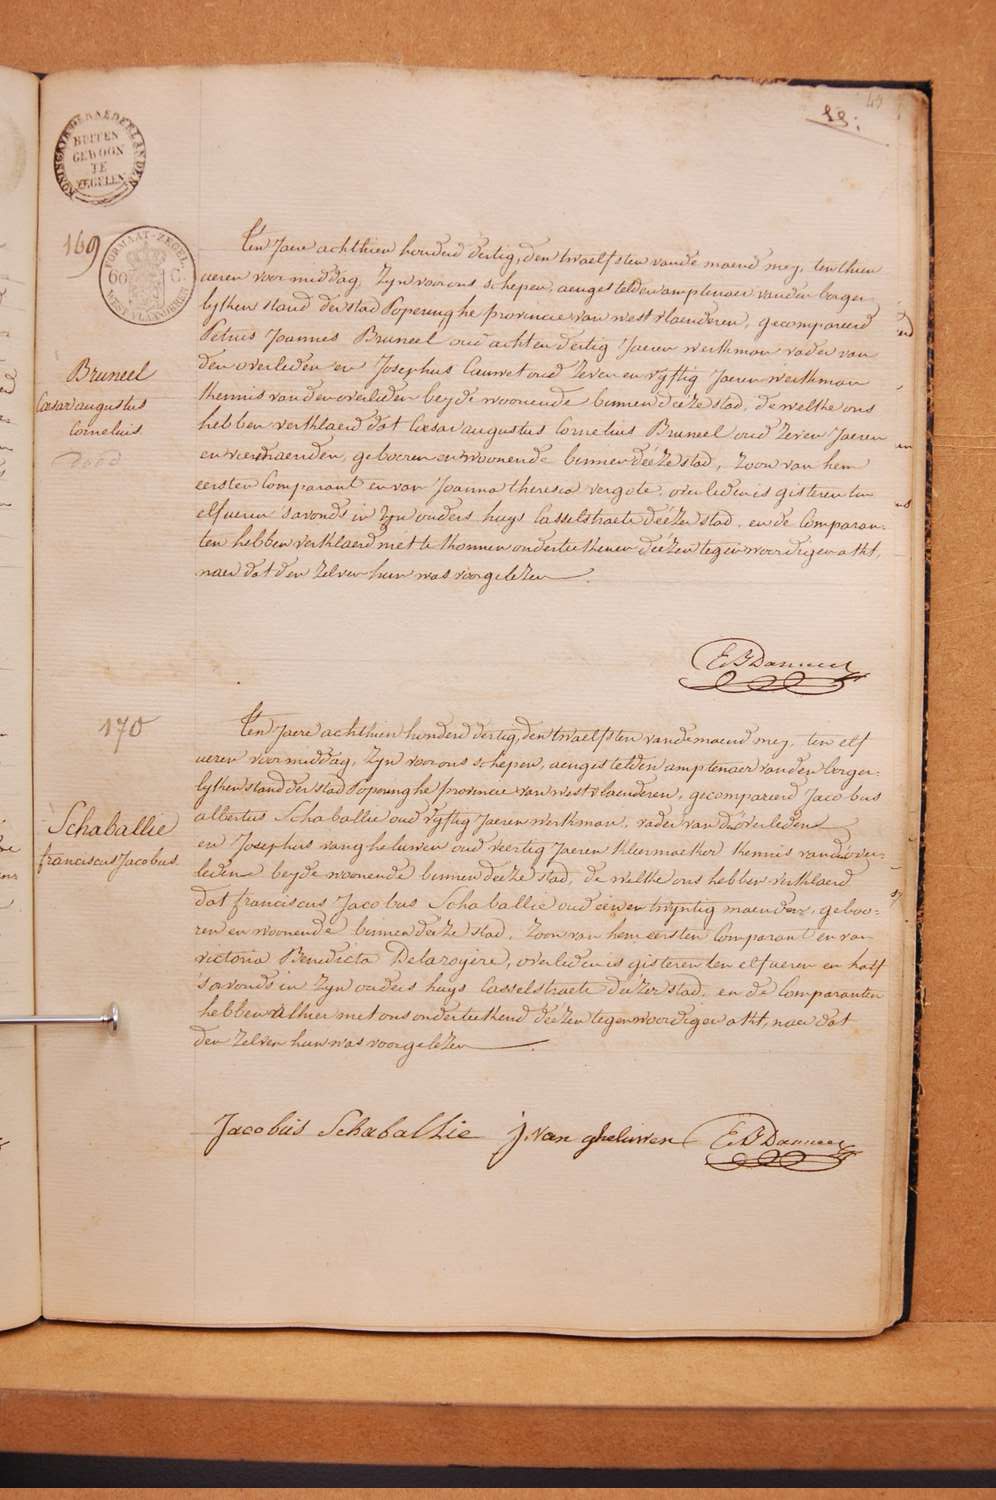 49
KONINGRYK DER NEDERLANDEN
BUITEN
GEWOON
TE
ZEGELEN
FORMAAT-ZEGEL
60 C.
WEST-VLAANDEREN
169
Bruneel
Cæsar augustus
Cornelius
Ten Jaere achthien honderd dertig, den twaelfsten vande maend mey, ten thien
ueren voormiddag, Zyn voor ons schepen, aengestelden amptenaer van den borger-
lyken stand der stad Poperinghe provincie van westvlaenderen, gecompareerd
Petrus Joannes Bruneel oud achtendertig Jaeren werkman vader van
den overleden en Josephus Cauwet oud zeven en vyftig Jaeren werkman
kennis van den overleden beyde woonende binnen deéze stad, de welke ons
hebben verklaerd dat Cæsar augustus Cornelius Bruneel oud zeven Jaeren
en vier maenden, gebooren en woonende binnen deéze stad, zoon van hem
eersten Comparant en van Joanna theresia vergote, overleden is gisteren ten
elf ueren s'avonds in zyn ouders huys Casselstraete deézer stad, en de Comparan-
ten hebben verklaerd niet te konnen onderteekenen deézen tegenwoordigen akt,
naer dat den zelven hun was voorgelezen.
170
Schaballie
franciscus Jacobus
Ten Jaere achthien honderd dertig, den twaelfsten vande maend mey, ten elf
ueren voormiddag, Zyn voor ons schepen, aengestelden amptenaer van den borger-
lyken stand der stad Poperinghe provincie van westvlaenderen, gecompareerd Jacobus
albertus Schaballie oud vyftig Jaeren werkman, vader van den overleden
en Josephus vangheluwen oud veertig Jaeren kleermaeker kennis vanden over-
leden beyde woonende binnen deeze stad, de welke ons hebben verklaerd
dat franciscus Jacobus Schaballie oud eenen twyntig maenden, geboo-
ren en woonende binnen deeze stad, zoon van hem eersten Comparant en van
victoria Benedicta Delaroyére, overleden is gisteren ten elf ueren en half
s'avonds in zyn ouders huys Casselstraete deézer stad, en de Comparanten
hebben alhier met ons onderteekend deézen tegenwoordigen akt, naer dat
den zelven hun was voorgelezen.
Jacobus Schaballie j. van gheluwen